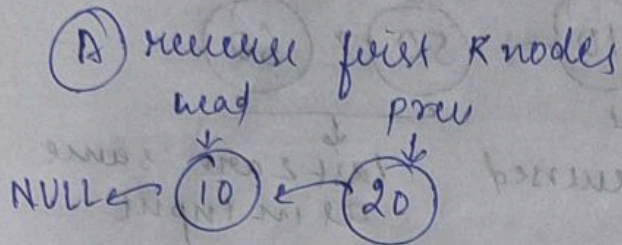 (A) reverse first K nodes
head prev
↓ ↓
NULL ← (10) ← (20)